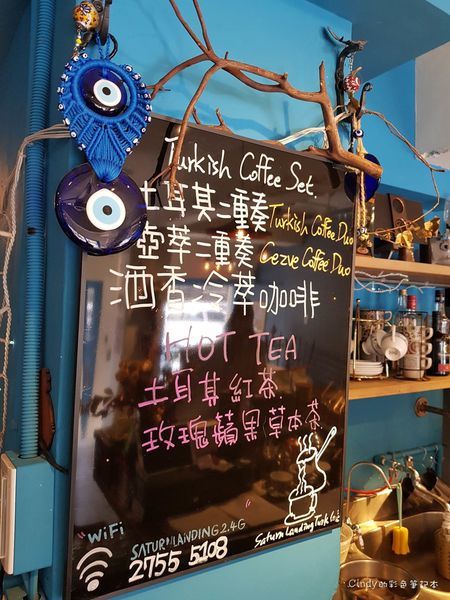 Turkish Coffee Set.
土耳其二重奏 Turkish Coffee Duo
壺萃二重奏 Cezve Coffee Duo
酒香冷萃咖啡
HOT TEA
土耳其紅茶
玫瑰蘋果草本茶
Saturn Landing Turk
"WiFi
SATURNLANDING2.4G
2755 5108
Cindy的彩色筆記本